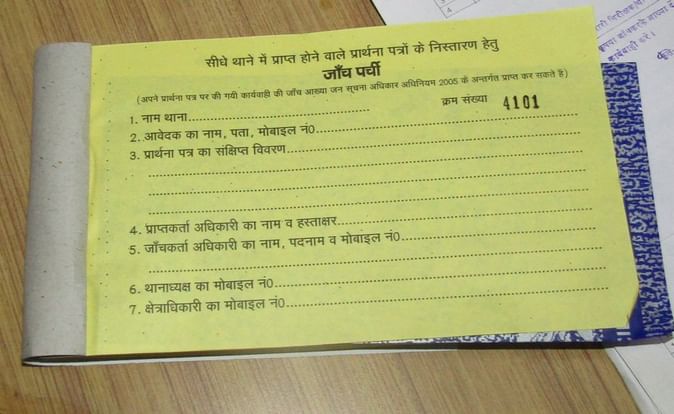 सीधे थाने में प्राप्त होने वाले प्रार्थना पत्रों के निस्तारण हेतु
जाँच पर्ची
(अपने प्रार्थना पत्र पर की गयी कार्यवाही की जाँच आख्या जन सूचना अधिकार अधिनियम 2005 के अन्तर्गत प्राप्त कर सकते है)
1. नाम थाना............ क्रम संख्या 4101
2. आवेदक का नाम, पता, मोबाइल नं0............
3. प्रार्थना पत्र का संक्षिप्त विवरण............
4. प्राप्तकर्ता अधिकारी का नाम व हस्ताक्षर............
5. जाँचकर्ता अधिकारी का नाम, पदनाम व मोबाइल नं0............
6. थानाध्यक्ष का मोबाइल नं0............
7. क्षेत्राधिकारी का मोबाइल नं0............
4